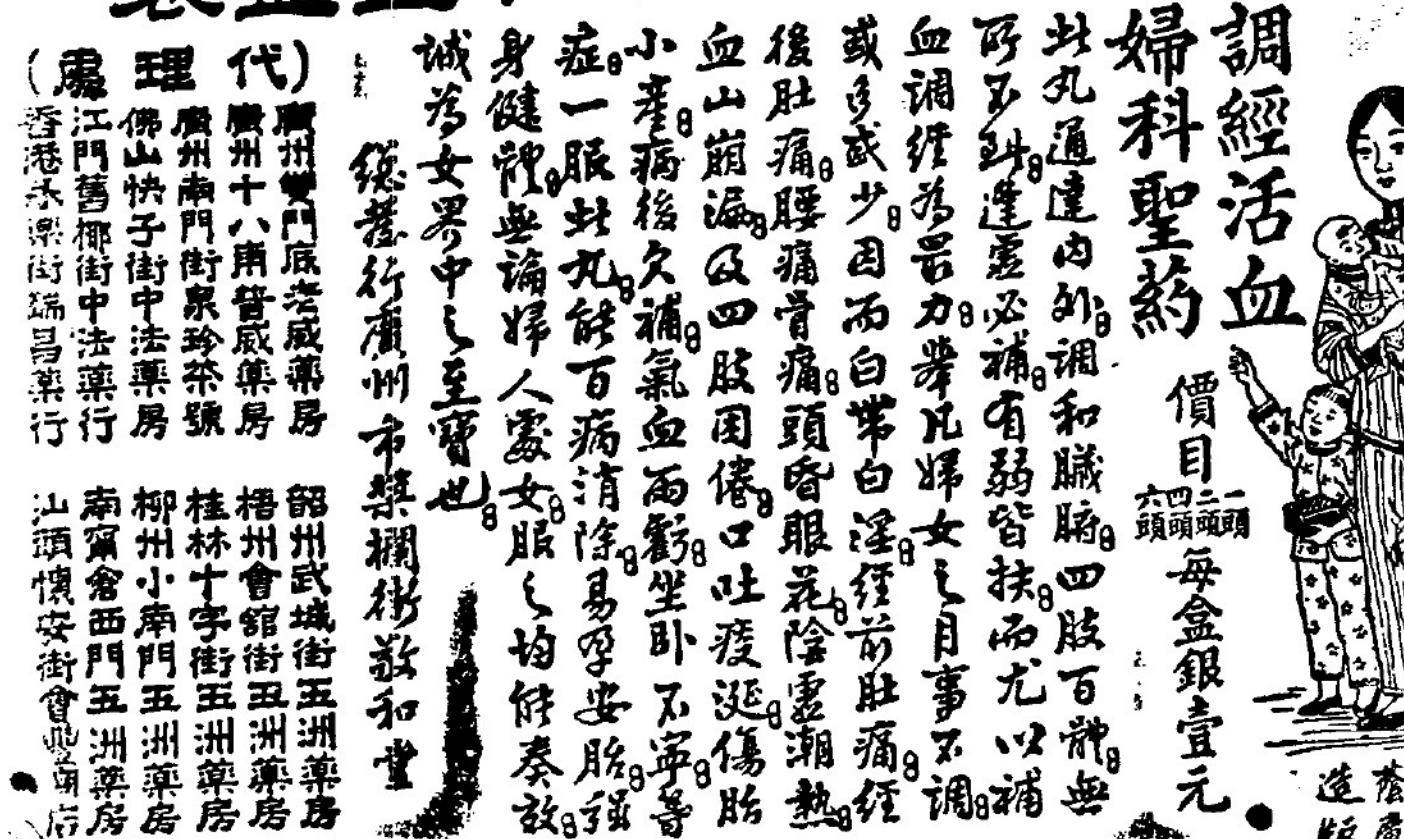 調經活血
婦科聖葯
價目
一頭
二頭
四頭
六頭
每盒銀壹元
此丸通達内外。調和臟腑。四肢百體。無
所不到。逢虛必補。有弱皆扶。而尤以補
血調經為最力。舉凡婦女之月事不調。
或多或少。因而白帶白淫。經前肚痛。經
後肚痛。腰痛骨痛。頭昏眼花。陰虛潮熱。
血山崩漏。及四肢困倦。口吐痰涎。傷胎
小產。病後欠補。氣血兩虧。坐卧不寧等
症。一服此丸。能百病消除。易孕安胎。強
身健體。無論婦人處女。服之均能奏效。
誠為女界中之至寶也。
總發行廣州市槳欄街敬和堂
(代理處)
廣州雙門底老威藥房
廣州十八甫普威藥房
廣州南門街泉珍茶號
佛山快子街中法藥房
江門舊椰街中法藥行
香港永樂街瑞昌藥行
韶州武城街五洲藥房
梧州會館街五洲藥房
桂林十字街五洲藥房
柳州小南門五洲藥房
南寗倉西門五洲藥房
汕頭懷安街會